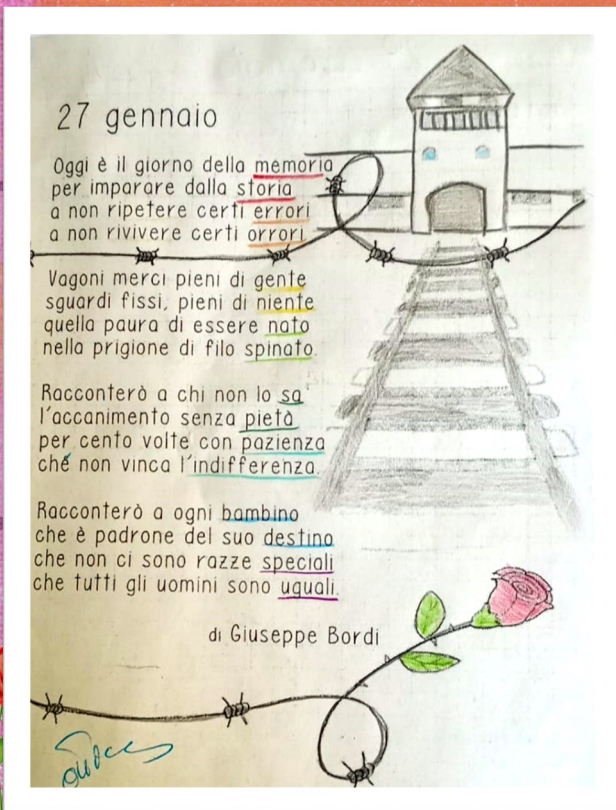 27 gennaio
Oggi è il giorno della memoria
per imparare dalla storia
a non ripetere certi errori
a non rivivere certi orrori.
Vagoni merci pieni di gente
sguardi fissi, pieni di niente
quella paura di essere nato
nella prigione di filo spinato.
Racconterò a chi non lo sa
l'accanimento senza pietà
per cento volte con pazienza
ché non vinca l'indifferenza.
Racconterò a ogni bambino
che è padrone del suo destino
che non ci sono razze speciali
che tutti gli uomini sono uguali.
di Giuseppe Bordi